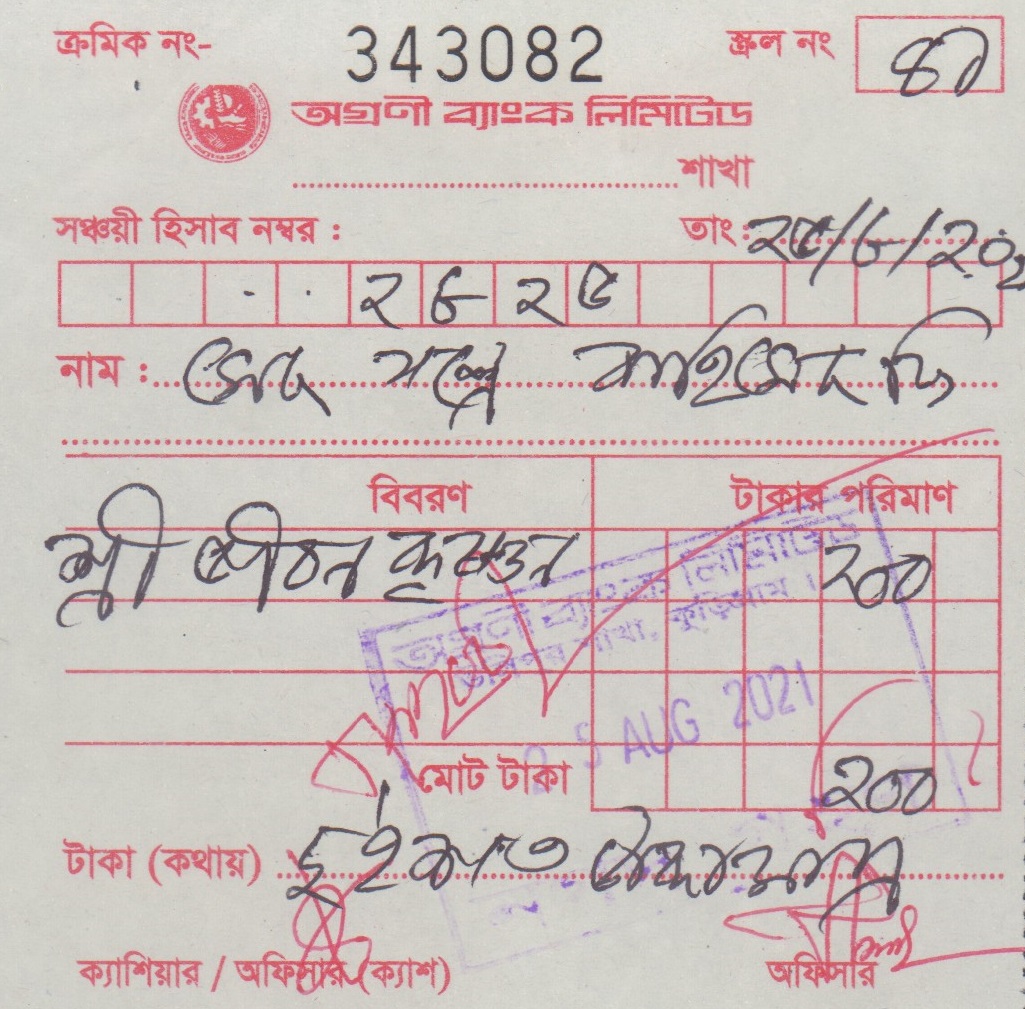 ক্রমিক নং- 343082 স্ক্রল নং ৪৯
অগ্রণী ব্যাংক লিমিটেড
শাখা
সঞ্চয়ী হিসাব নম্বর : তাং: ২৫/৮/২০২
২৮২৫
নাম :
বিবরণ টাকার পরিমাণ
শ্রী ২০০
অগ্রণী ব্যাংক লিমিটেড
শাখা, কুড়িগ্রাম ।
25 AUG 2021
মোট টাকা ২০০
টাকা (কথায়) দুইশত টাকা মাত্র
ক্যাশিয়ার / অফিসার (ক্যাশ) অফিসার